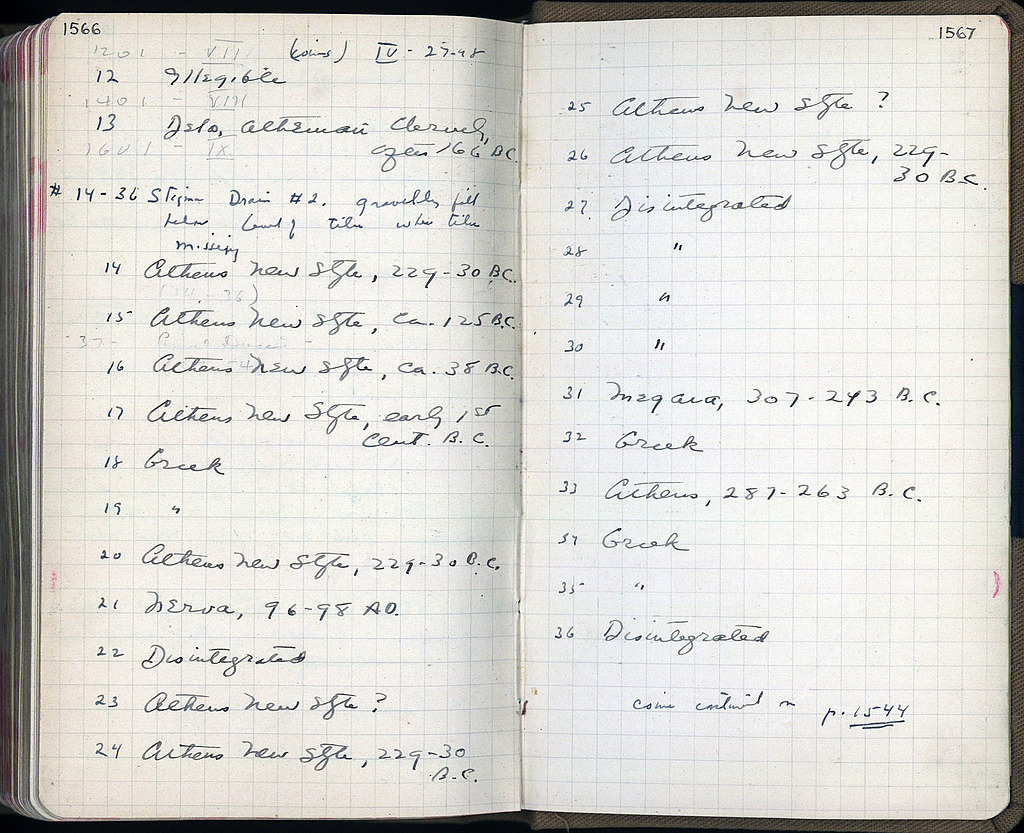 1566
1201 - VIII (coins) IV - 27-48
12 Illegible
1401 - VIII
13 Delos, Athenian Cleruch,
1601 - IX after 166 B.C.
# 14-36 Stigma Drain #2. gravelly fill
below level of tiles when tiles
missing
14 Athens New Style, 229-30 B.C.
15 Athens New Style, ca. 125 B.C.
37-
16 Athens New Style, ca. 38 B.C.
17 Athens New Style, early 1st
Cent. B.C.
18 Greek
19 "
20 Athens New Style, 229-30 B.C.
21 Nerva, 96-98 AD.
22 Disintegrated
23 Athens New Style ?
24 Athens New Style, 229-30
B.C.
1567
25 Athens New Style ?
26 Athens New Style, 229-
30 B.C.
27 Disintegrated
28 "
29 "
30 "
31 Megara, 307-243 B.C.
32 Greek
33 Athens, 287-263 B.C.
34 Greek
35 "
36 Disintegrated
coins continued on p. 1544